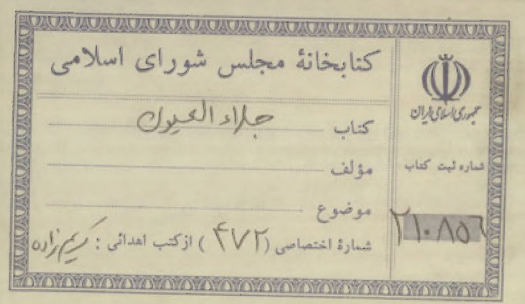 کتابخانهٔ مجلس شورای اسلامی
کتاب جلاء العیون
مؤلف
موضوع
شمارهٔ اختصاصی (۴۷۲) از کتب اهدائی : کریم زاده
جمهوری اسلامی ایران
شماره ثبت کتاب
۲۱۰۸۵۶